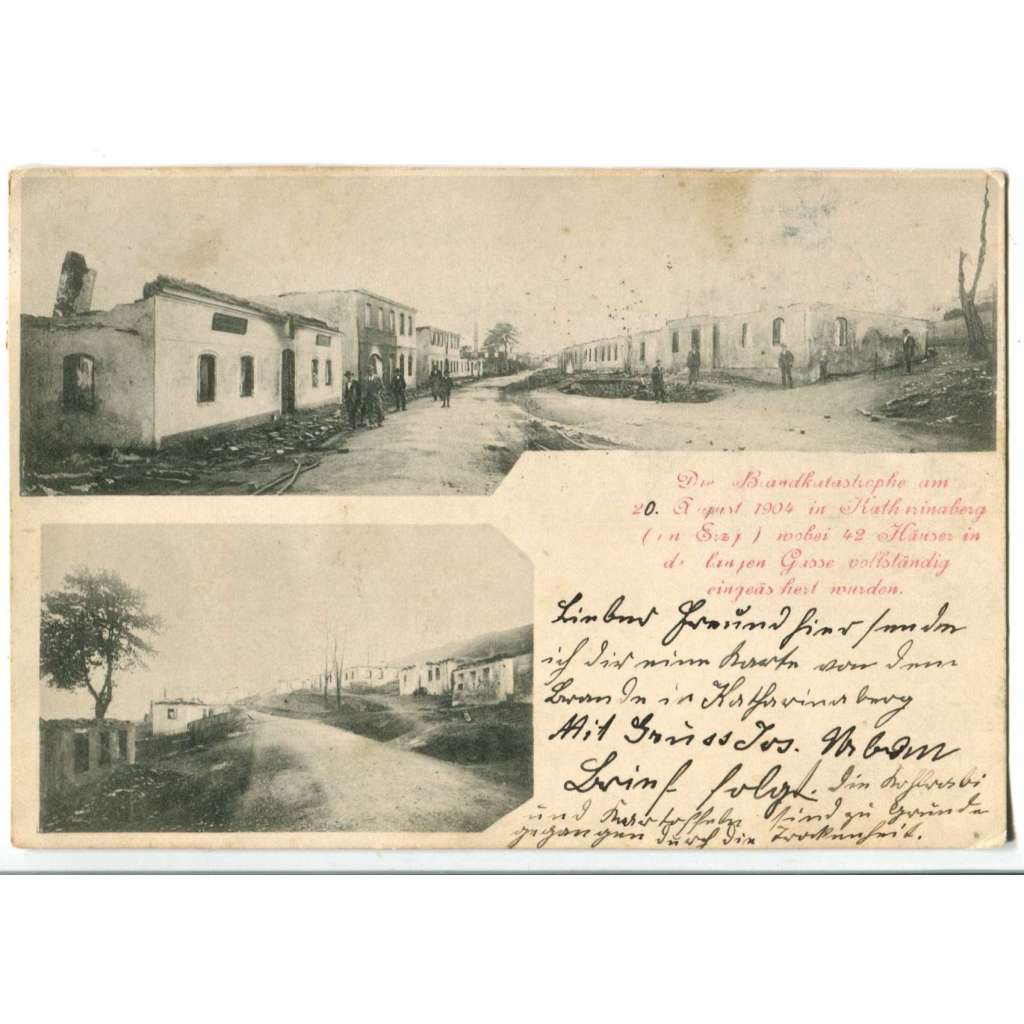 Die Brandkatastrophe am
20. August 1904 in Katharinaberg
(im Erzg.) wobei 42 Häuser in
der langen Gasse vollständig
eingeäschert wurden.
Lieber Freund hier sende
ich dir eine Karte von dem
Brande in Katharinaberg
Mit Gruss Jos. Urban
Brief folgt. die Kohlrabi
und Kartoffeln sind zu Grunde
gegangen durch die Trockenheit.